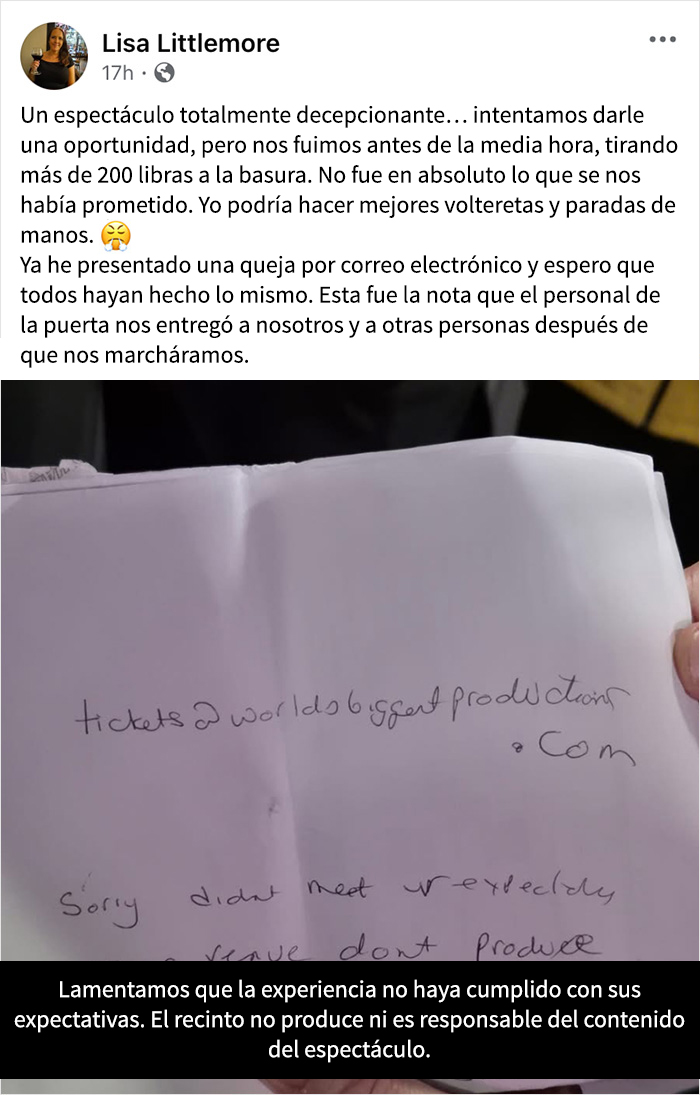 Lisa Littlemore
17h ·
Un espectáculo totalmente decepcionante... intentamos darle
una oportunidad, pero nos fuimos antes de la media hora, tirando
más de 200 libras a la basura. No fue en absoluto lo que se nos
había prometido. Yo podría hacer mejores volteretas y paradas de
manos. 😤
Ya he presentado una queja por correo electrónico y espero que
todos hayan hecho lo mismo. Esta fue la nota que el personal de
la puerta nos entregó a nosotros y a otras personas después de
que nos marcháramos.
tickets@worldsbiggestproductions
.com
Sorry didnt meet ur
venue dont produce
Lamentamos que la experiencia no haya cumplido con sus
expectativas. El recinto no produce ni es responsable del contenido
del espectáculo.